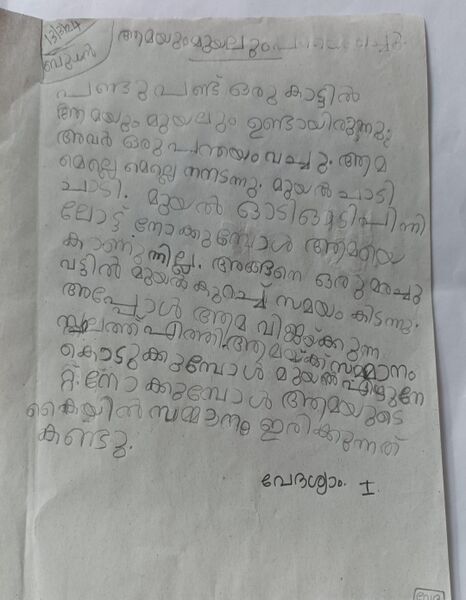 13/3/24
ബുധൻ
ആമയും മുയലും
പണ്ടു പണ്ട് ഒരു കാട്ടിൽ
ആമയും മുയലും ഉണ്ടായിരുന്നു.
അവർ ഒരു പന്തയം വച്ചു. ആമ
മെല്ലെ മെല്ലെ നനടന്നു. മുയൽ ചാടി
ചാടി. മുയൽ ഓടിഓടിപിന്നി
ലോട്ട് നോക്കുമ്പോൾ ആമയെ
കാണുന്നില്ല. അങ്ങനെ ഒരു മരച്ചു
വട്ടിൽ മുയൽ കുറച്ച് സമയം കിടന്നു.
അപ്പോൾ ആമ വിജയ്ക്കുന്ന
സ്ഥലത്ത് എത്തി. ആമയ്ക്ക് സമ്മാനം
കൊടുക്കുമ്പോൾ മുയൽ എഴുനേ
റ്റ്. നോക്കുമ്പോൾ ആമയുടെ
കൈയിൽ സമ്മാനം ഇരിക്കുന്നത്
കണ്ടു.
വേദശ്യാം. I